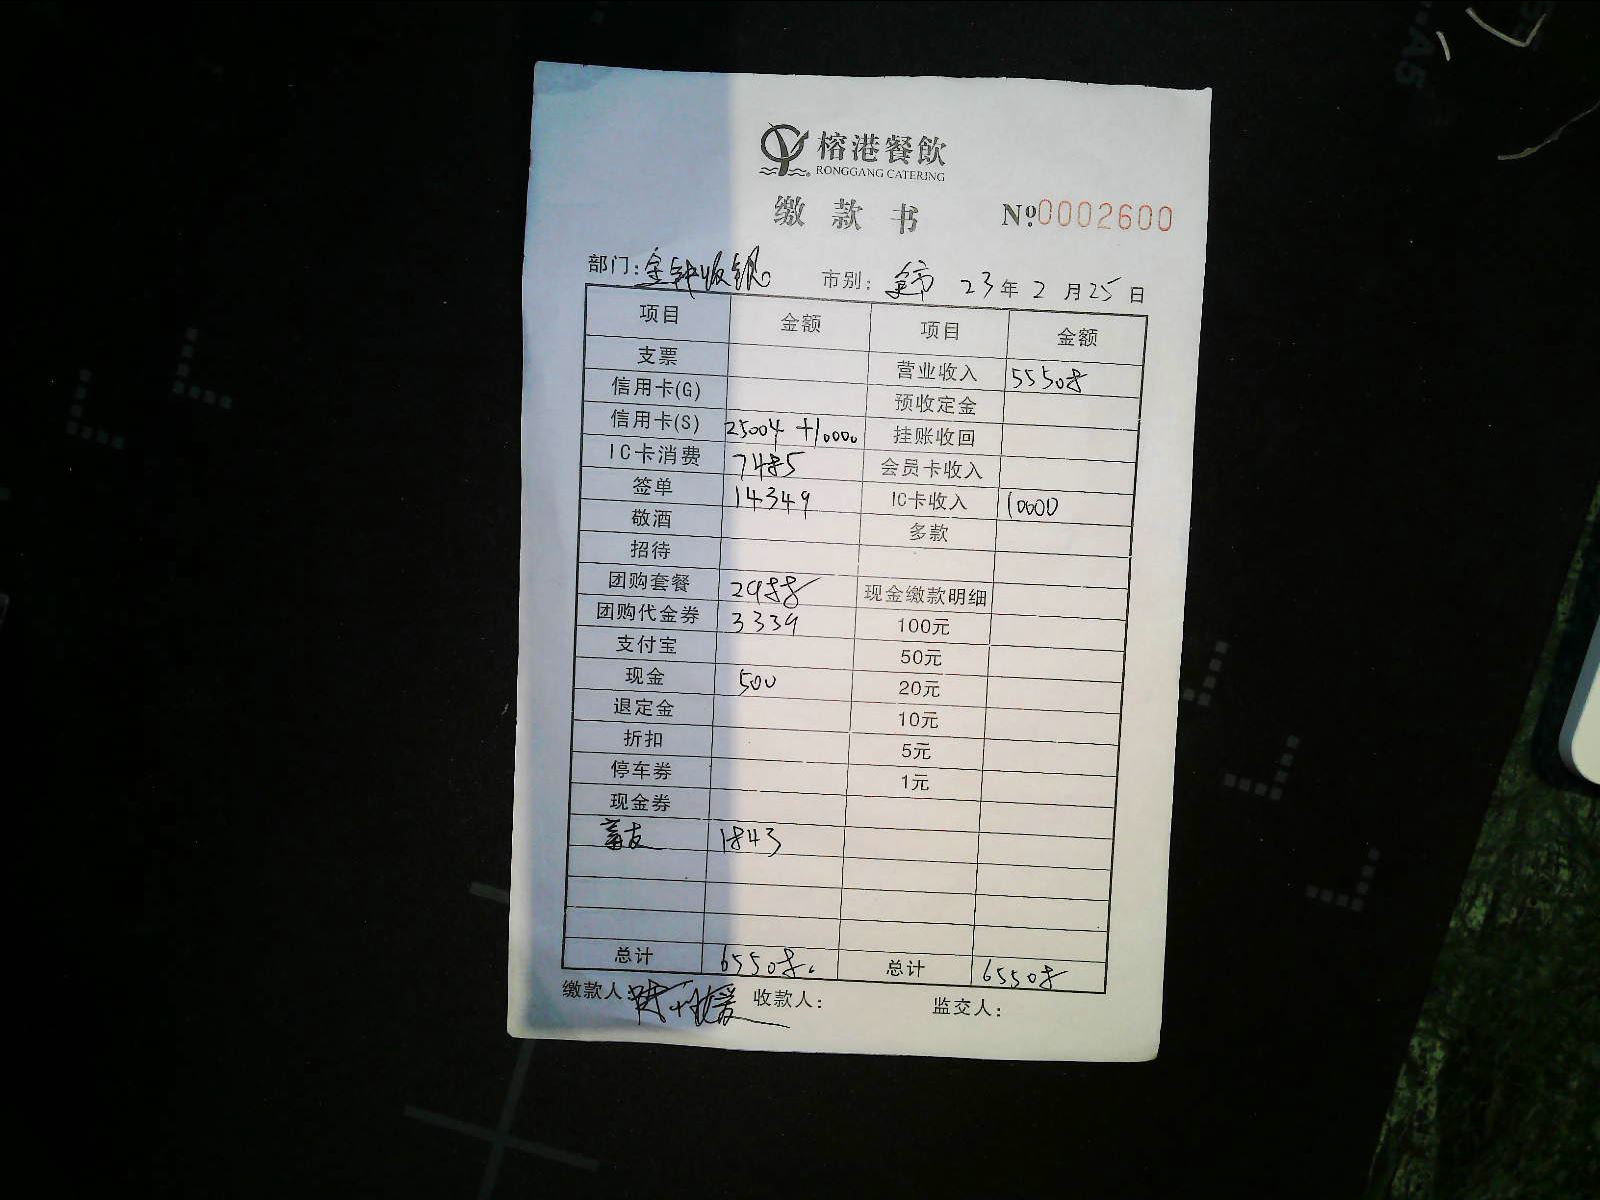 榕港餐飲
RONGGANG CATERING
缴款书 №0002600
部门：金钟收银 市别：全市 23年2月25日
项目 金额 项目 金额
支票 营业收入 55508
信用卡(G) 预收定金
信用卡(S) 25004 +10000 挂账收回
IC卡消费 7485 会员卡收入
签单 14349 IC卡收入 10000
敬酒 多款
招待
团购套餐 2988 现金缴款明细
团购代金券 3339 100元
支付宝 50元
现金 500 20元
退定金 10元
折扣 5元
停车券 1元
现金券
1843
总计 65508. 总计 65508
缴款人： 收款人： 监交人：
A5